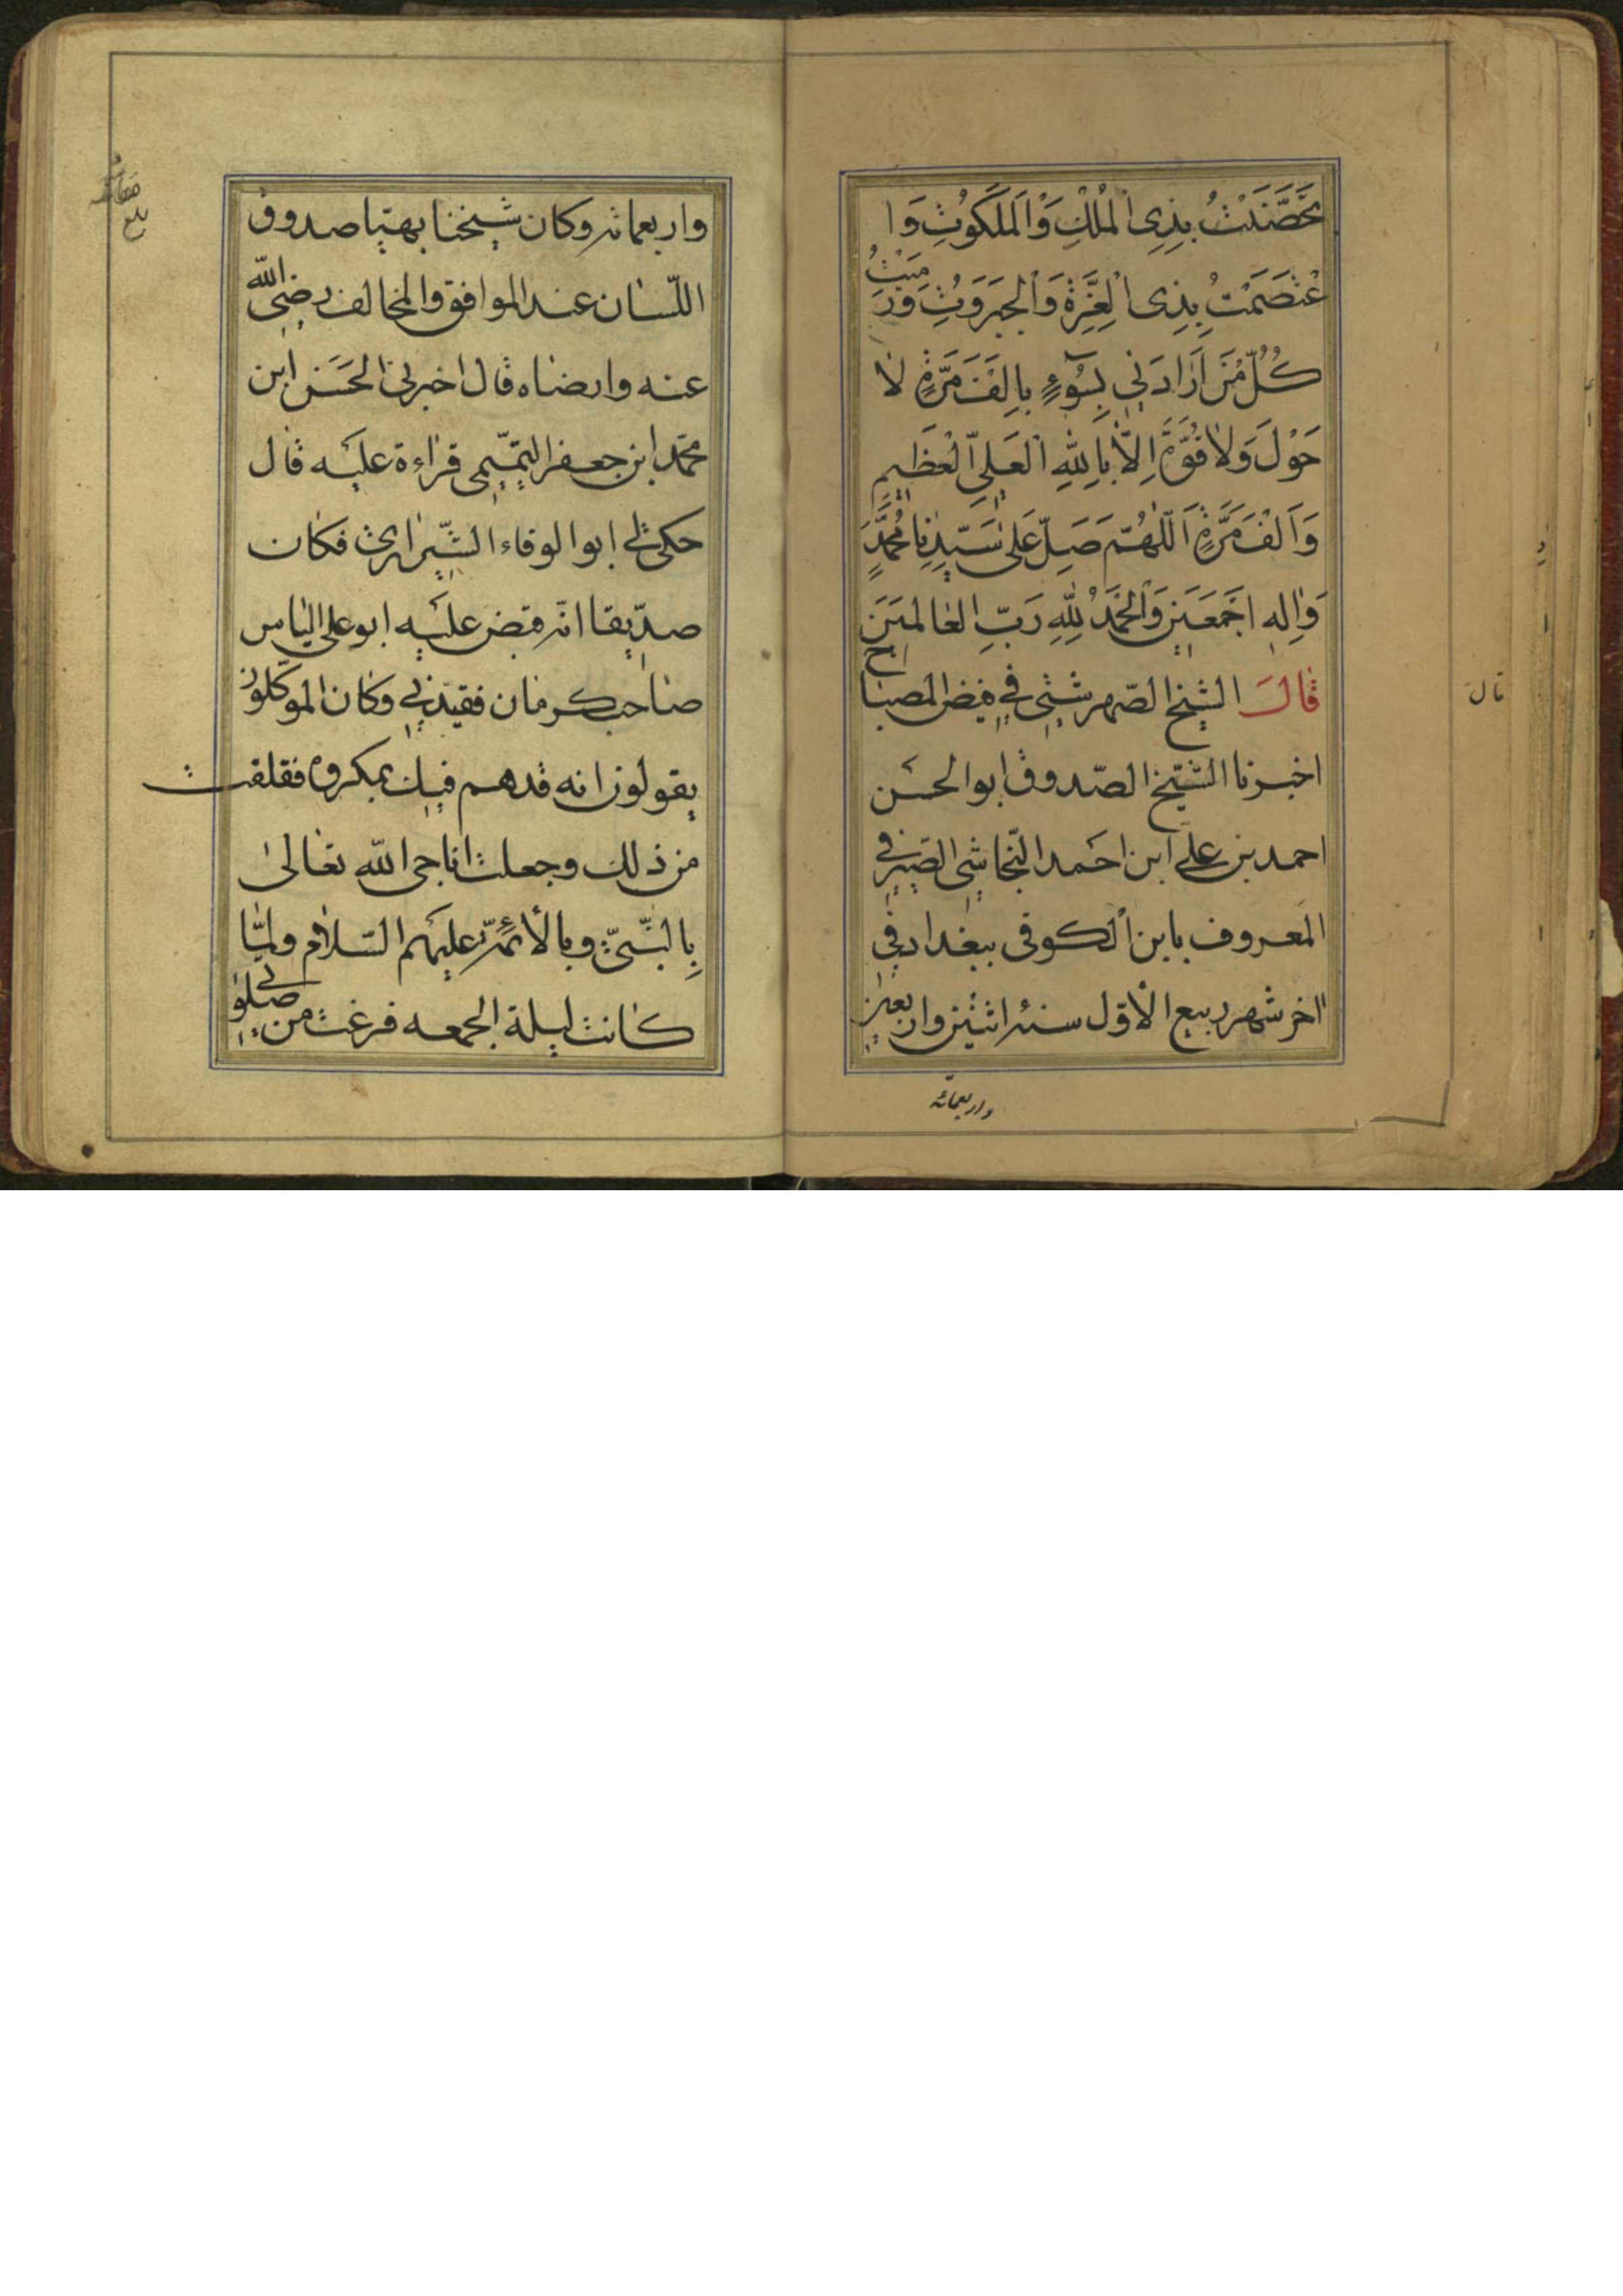 تَحَصَّنْتُ بِذِی الْمُلْكِ وَالْمَلَكُوتِ وَا
عْتَصَمْتُ بِذِی الْعِزَّةِ وَالْجَبَرُوتِ وَرَمَيْتُ
كُلَّ مَنْ اَرَادَنِي بِسُوءٍ بِاَلْفِ مَرَّةٍ لا
حَوْلَ وَلا قُوَّةَ اِلّا بِاللهِ الْعَلِىِّ الْعَظِيمِ
وَاَلْفَ مَرَّةٍ اَللّهُمَّ صَلِّ عَلى سَيِّدِنا مُحَمَّدٍ
وَالِهِ اجْمَعَينَ وَالْحَمْدُ لِلّهِ رَبِّ الْعالَمينَ
قالَ الشيخ الصّهرشتى في قبض المصباح
اخبرنا الشّيخ الصّدوق ابو الحسَن
احمد بن علي ابن احمد النّجاشى الصّيرفي
المعروف بابن الكوفى ببغداد في
اخر شهر ربيع الأوّل سنة اثنين واربعين
واربعمائه
قال
واربعمائة وكان شيخنا بهيّا صدوق
اللّسان عند الموافق والمخالف رضي الله
عنه وارضاه قال اخبرنى الحَسَن ابن
محمّد ابن جعفر التميمى قراءة عليه قال
حكى لي ابو الوفاء الشّيرازى فكان
صدّيقا انّه قبض عليه ابو على الياس
صاحب كرمان فقيّدنى وكان الموكّلون
يقولون انه قد هم فيك بمكروه فقلقت
من ذلك وجعلت اناجى الله تعالىٰ
بِالنّبىّ وبالأئمّة عليهم السّلام ولمّا
كانت ليلة الجمعه فرغت من صلوٰتى
بلغ